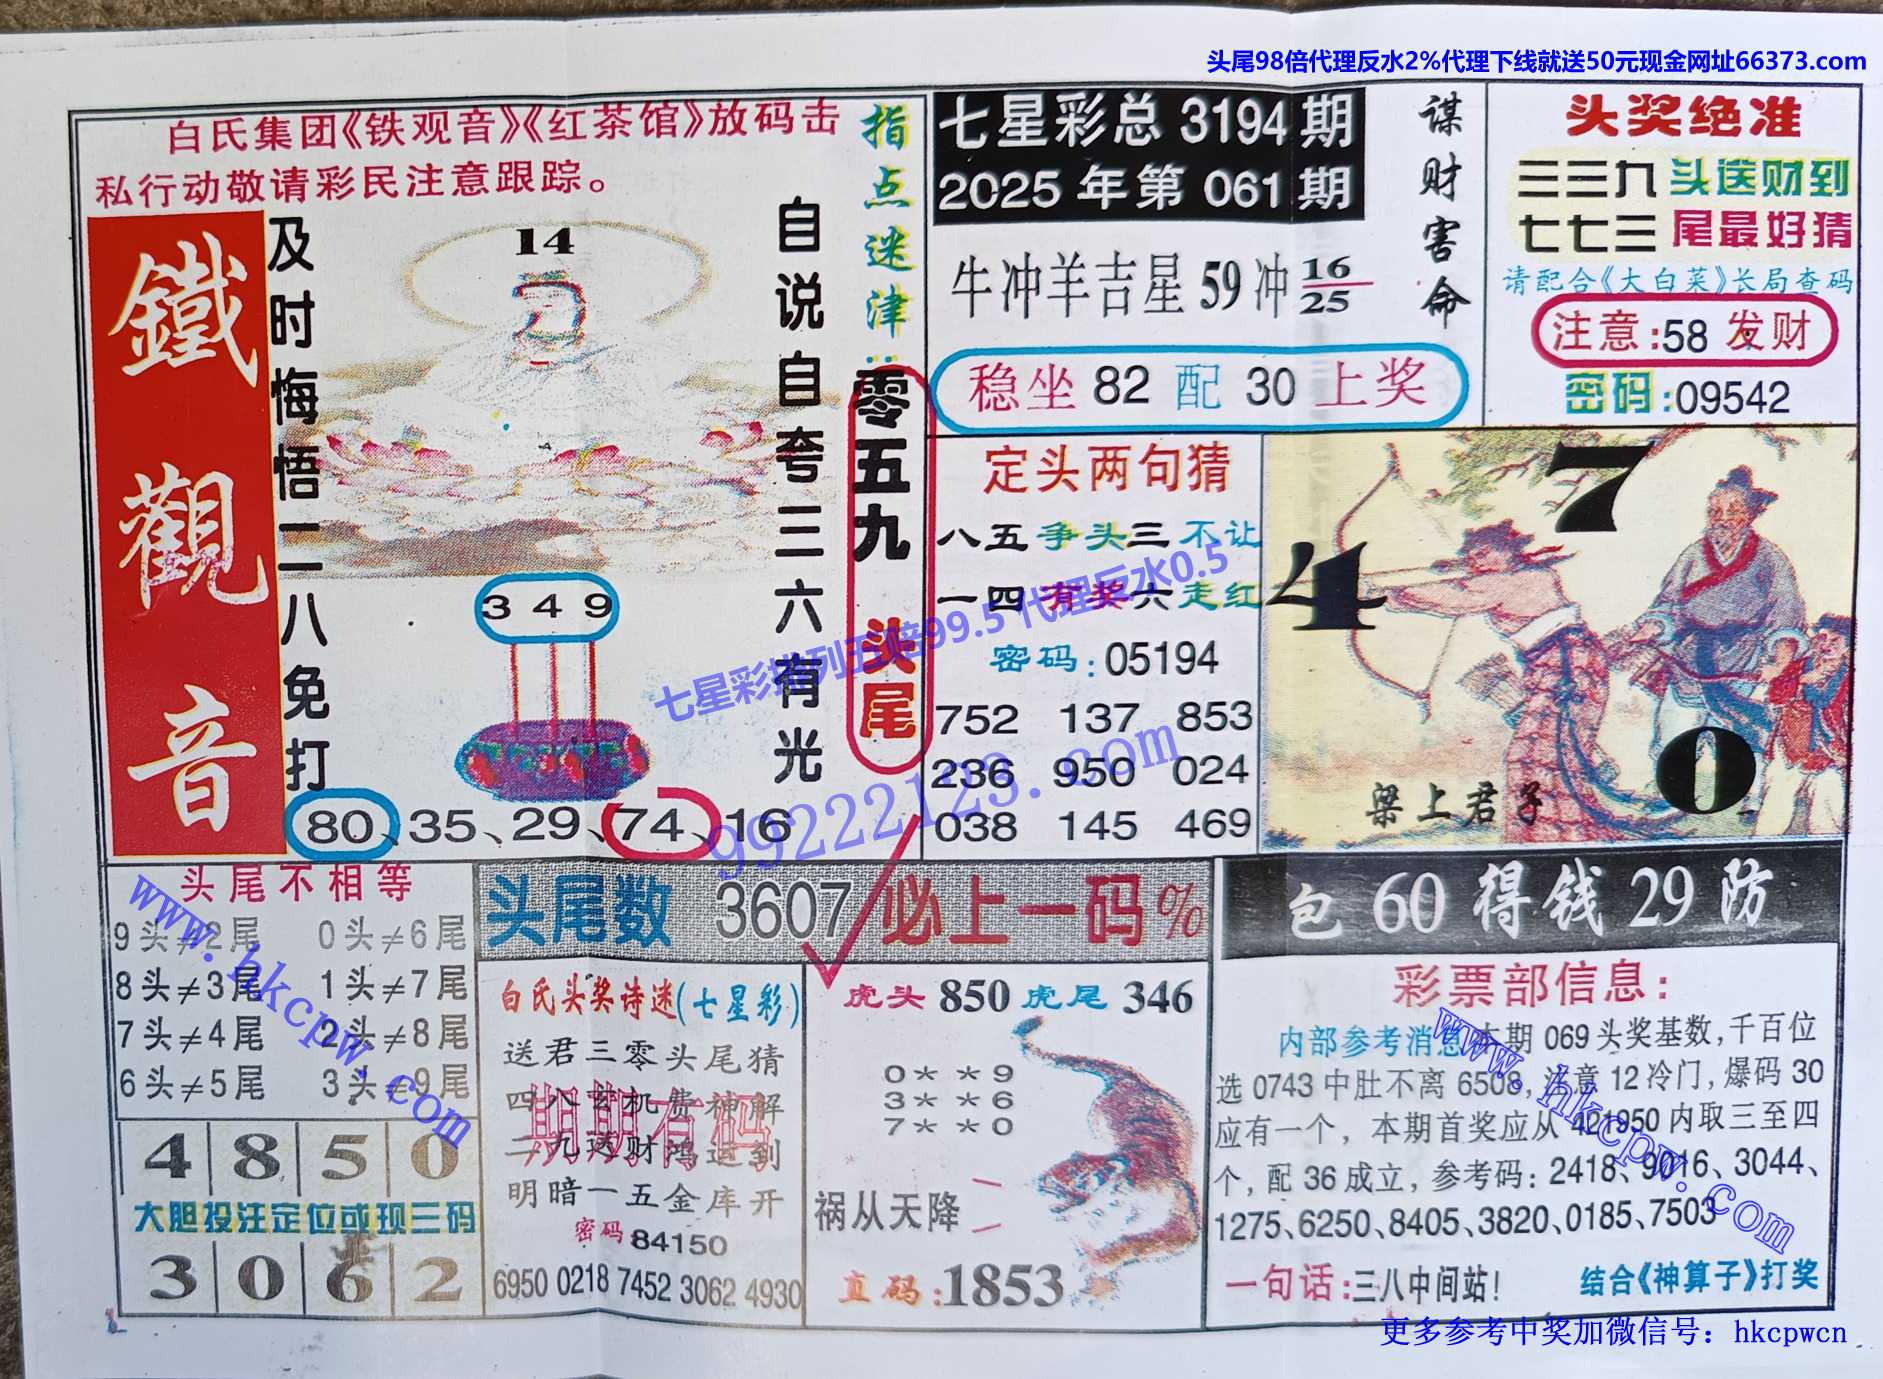 头尾98倍代理反水2%代理下线就送50元现金网址66373.com
白氏集团《铁观音》《红茶馆》放码击
私行动敬请彩民注意跟踪。
鐵觀音
及时悔悟二八免打
14
自说自夸三六有光
指点迷津:零五九 头尾
3 4 9
80、35、29、74、16
七星彩总 3194 期
2025 年第 061 期
牛冲羊吉星 59 冲 16
25
稳坐 82 配 30 上奖
谋财害命
头奖绝准
三三九头送财到
七七三尾最好猜
请配合《大白菜》长局查码
注意:58 发财
密码:09542
定头两句猜
八五争头三不让
一四有奖六走红
密码:05194
752 137 853
236 950 024
038 145 469
7
4
0
梁上君子
七星彩排列五赔99.5 代理反水0.5
99222123.com
头尾不相等
9头≠2尾 0头≠6尾
8头≠3尾 1头≠7尾
7头≠4尾 2头≠8尾
6头≠5尾 3头≠9尾
www.hkcpw.com
4 8 5 0
大胆投注定位或现三码
3 0 6 2
头尾数 3607 必上一码%
白氏头奖诗迷(七星彩)
送君三零头尾猜
四八玄机费神解
二九送财鸿运到
明暗一五金库开
期期有码
密码 84150
6950 0218 7452 3062 4930
虎头 850 虎尾 346
0* *9
3* *6
7* *0
祸从天降
直码:1853
包 60 得钱 29 防
彩票部信息:
内部参考消息本期 069 头奖基数,千百位
选 0743 中肚不离 6508, 注意 12 冷门, 爆码 30
应有一个, 本期首奖应从 421950 内取三至四
个, 配 36 成立, 参考码: 2418、9016、3044、
1275、6250、8405、3820、0185、7503
www.hkcpw.com
一句话:三八中间站!
结合《神算子》打奖
更多参考中奖加微信号: hkcpwcn